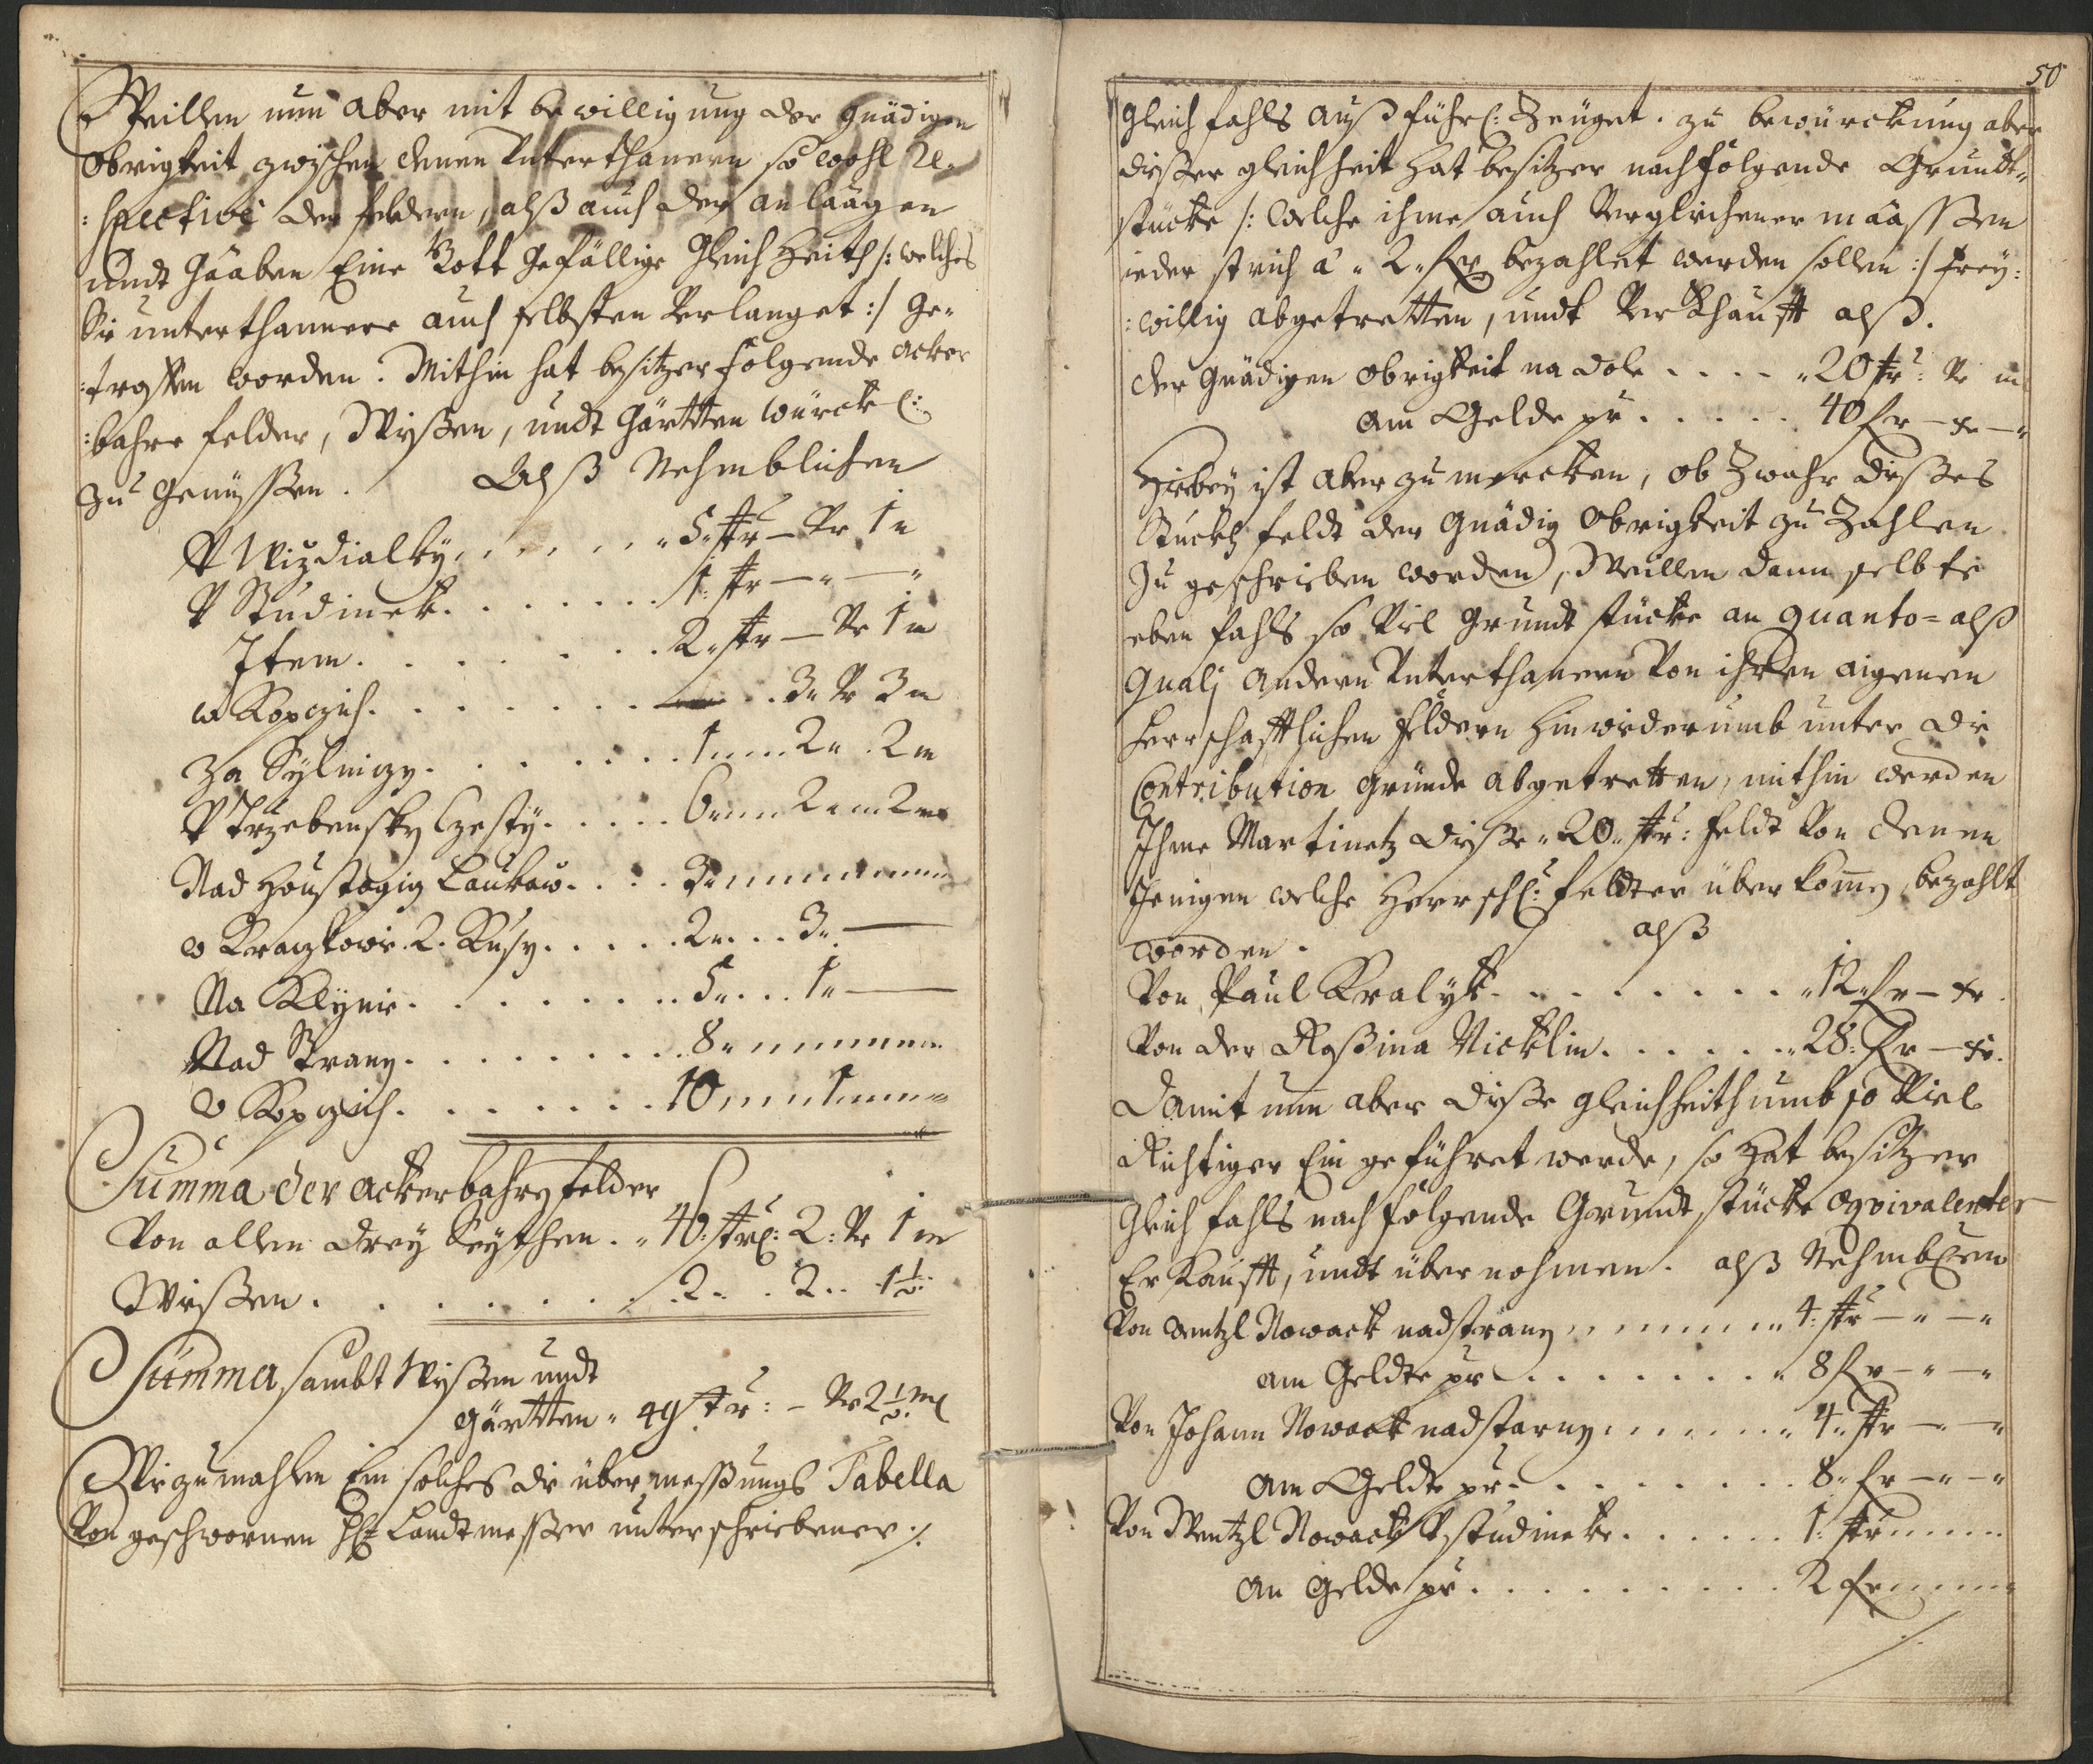 Weillen nun aber mit bewilligung der gnädigen
obrigkeit zwischen denen Unterthanern so wohl Re-
:spective der feldern, alß auch der anlaagen
undt Gaaben Eine Gott gefällige Gleich Heith /: welches
Sie unterthannere auch selbsten Verlanget :/ ge-
:troffen worden. Mithin hat besitzer folgende acker
:bahre felder, Wyßen, undt gärtten würckl:
zu genüssen. Alß Nehmblichen
V Wizdialky . . . . . 5 str — Vr 1 m
V Studinek . . . . . . 1: str — " — "
Item . . . . . . . 2 str — Vr 1 m
w Kopczich . . . . . . . 3 Vr 3 m
Za Sylnizy . . . . . . 1 " " 2 " 2 m
V Trzebensky Czesty . . . . . 6 " " 2 " " 2 m
Nad Houstogig Laukaw . . . . 3 " " " " "
w Kraczkowie 2. Kusy . . . . . 2 " . . 3 " —
Na Klynie . . . . . . . 5 " . . 1 " —
Nad Strany . . . . . . . 8 " " " " "
w Kopczich . . . . . . . 10 " " 1 " " "
Summa der ackerbahren felder
Von allen drey Seythen . " 46: strl: 2: Vr 1 m
Wießen . . . . . . . 2 . . 2 . . 1½
Summa, sambt Wyßen undt
gärtten " 49 str: — Vr 2½ ml
Wie zumahlen Ein solches die übermessungs Tabella
Von geschwornen H: Landtmesser unterschriebener ./.
50
gleichfahls außführl: Zeüget. zu bewürckung aber
dießer gleichheit hat besitzer nachfolgende Grundt-
stücke /: welche ihme auch Verglichener maassen
ieder strich à " 2 " fr bezahlet werden sollen :/ frey:
:willig abgetretten, undt Verkhaufft alß.
der Gnädigen obrigkeit na dole . . . . " 20 str: Vr m
am Gelde pr . . . . . 40 fr — xr — "
Hiebey ist aber zu mercken, ob Zwahr dießes
Stuckh feldt der Gnädig obrigkeit zu Zahlen
Zu geschrieben worden, Weillen dann selbte
eben fahls so Viel Grundtstücke an quanto = alß
quali andern Unterthanern Von ihren aigenen
herrschafftlichen feldern hinwiderumb unter die
Contribution gründe abgetretten, mithin werden
Ihme Martinetz dieße " 20 " str: feldt Von denen
Jenigen welche Herrschl: feldter überkomen, bezahlt
worden. alß
Von Paul Kralyk . . . . . . . . " 12 fr — xr.
Von der Roßina Nicklin . . . . . . " 28: fr — xr.
Damit nun aber dieße gleichheith umb so Viel
Richtiger Eingeführet werde, so hat besitzer
Gleich fahls nachfolgende Grundtstücke æqvivalenter
Er Kaufft, undt übernohmen. alß Nehmblichen
Von Wentzl Nowack nadstrany . . . . . " 4: str — " — "
am Geldte pr . . . . . . . " 8 fr — " — "
Von Johann Nowack nadstarny . . . . . . " 4 " str — " — "
am Geldte pr . . . . . . . . 8 " fr — " — "
Von Wentzl Nowack V studineke . . . . . 1: str " " "
an Gelde pr . . . . . . . . . 2 fr " " "